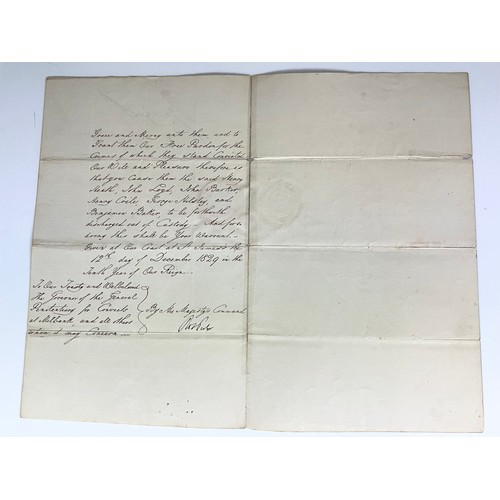 Grace and Mercy unto them and to
Grant them Our Free Pardon for the
Crimes of which they stand Convicted
Our Will and Pleasure therefore is
that you Cause them the said Henry
Heath, John Loyd, John Barker,
Henry George Hilsley, and
Benjamin Baker, to be forthwith
discharged out of Custody. And for so
doing this shall be Your Warrant.
Given at Our Court at St. James's the
12th day of December 1829 in the
Tenth Year of Our Reign.
To Our Trusty and Wellbeloved
the Governor of the General
Penitentiary for Convicts
at Milbank and all others
whom it may Concern
By His Majesty's Command